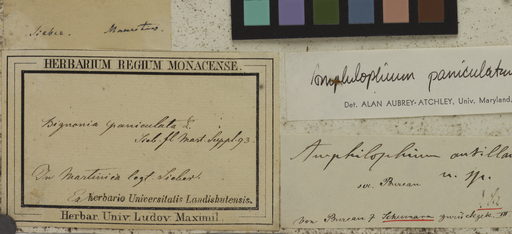 Sieber. Mauritius.
HERBARIUM REGIUM MONACENSE.
Bignonia paniculata L.
Sieb. fl. Mart. Suppl. 93
In Martinica legt Sieber.
Ex herbario Universitatis Landishutensis.
Herbar. Univ. Ludov. Maximil.
Amphilophium paniculatum
Det. ALAN AUBREY-ATCHLEY, Univ. Maryland,
Amphilophium antillan
n. sp.
Bureau
von Bureau & Schumann